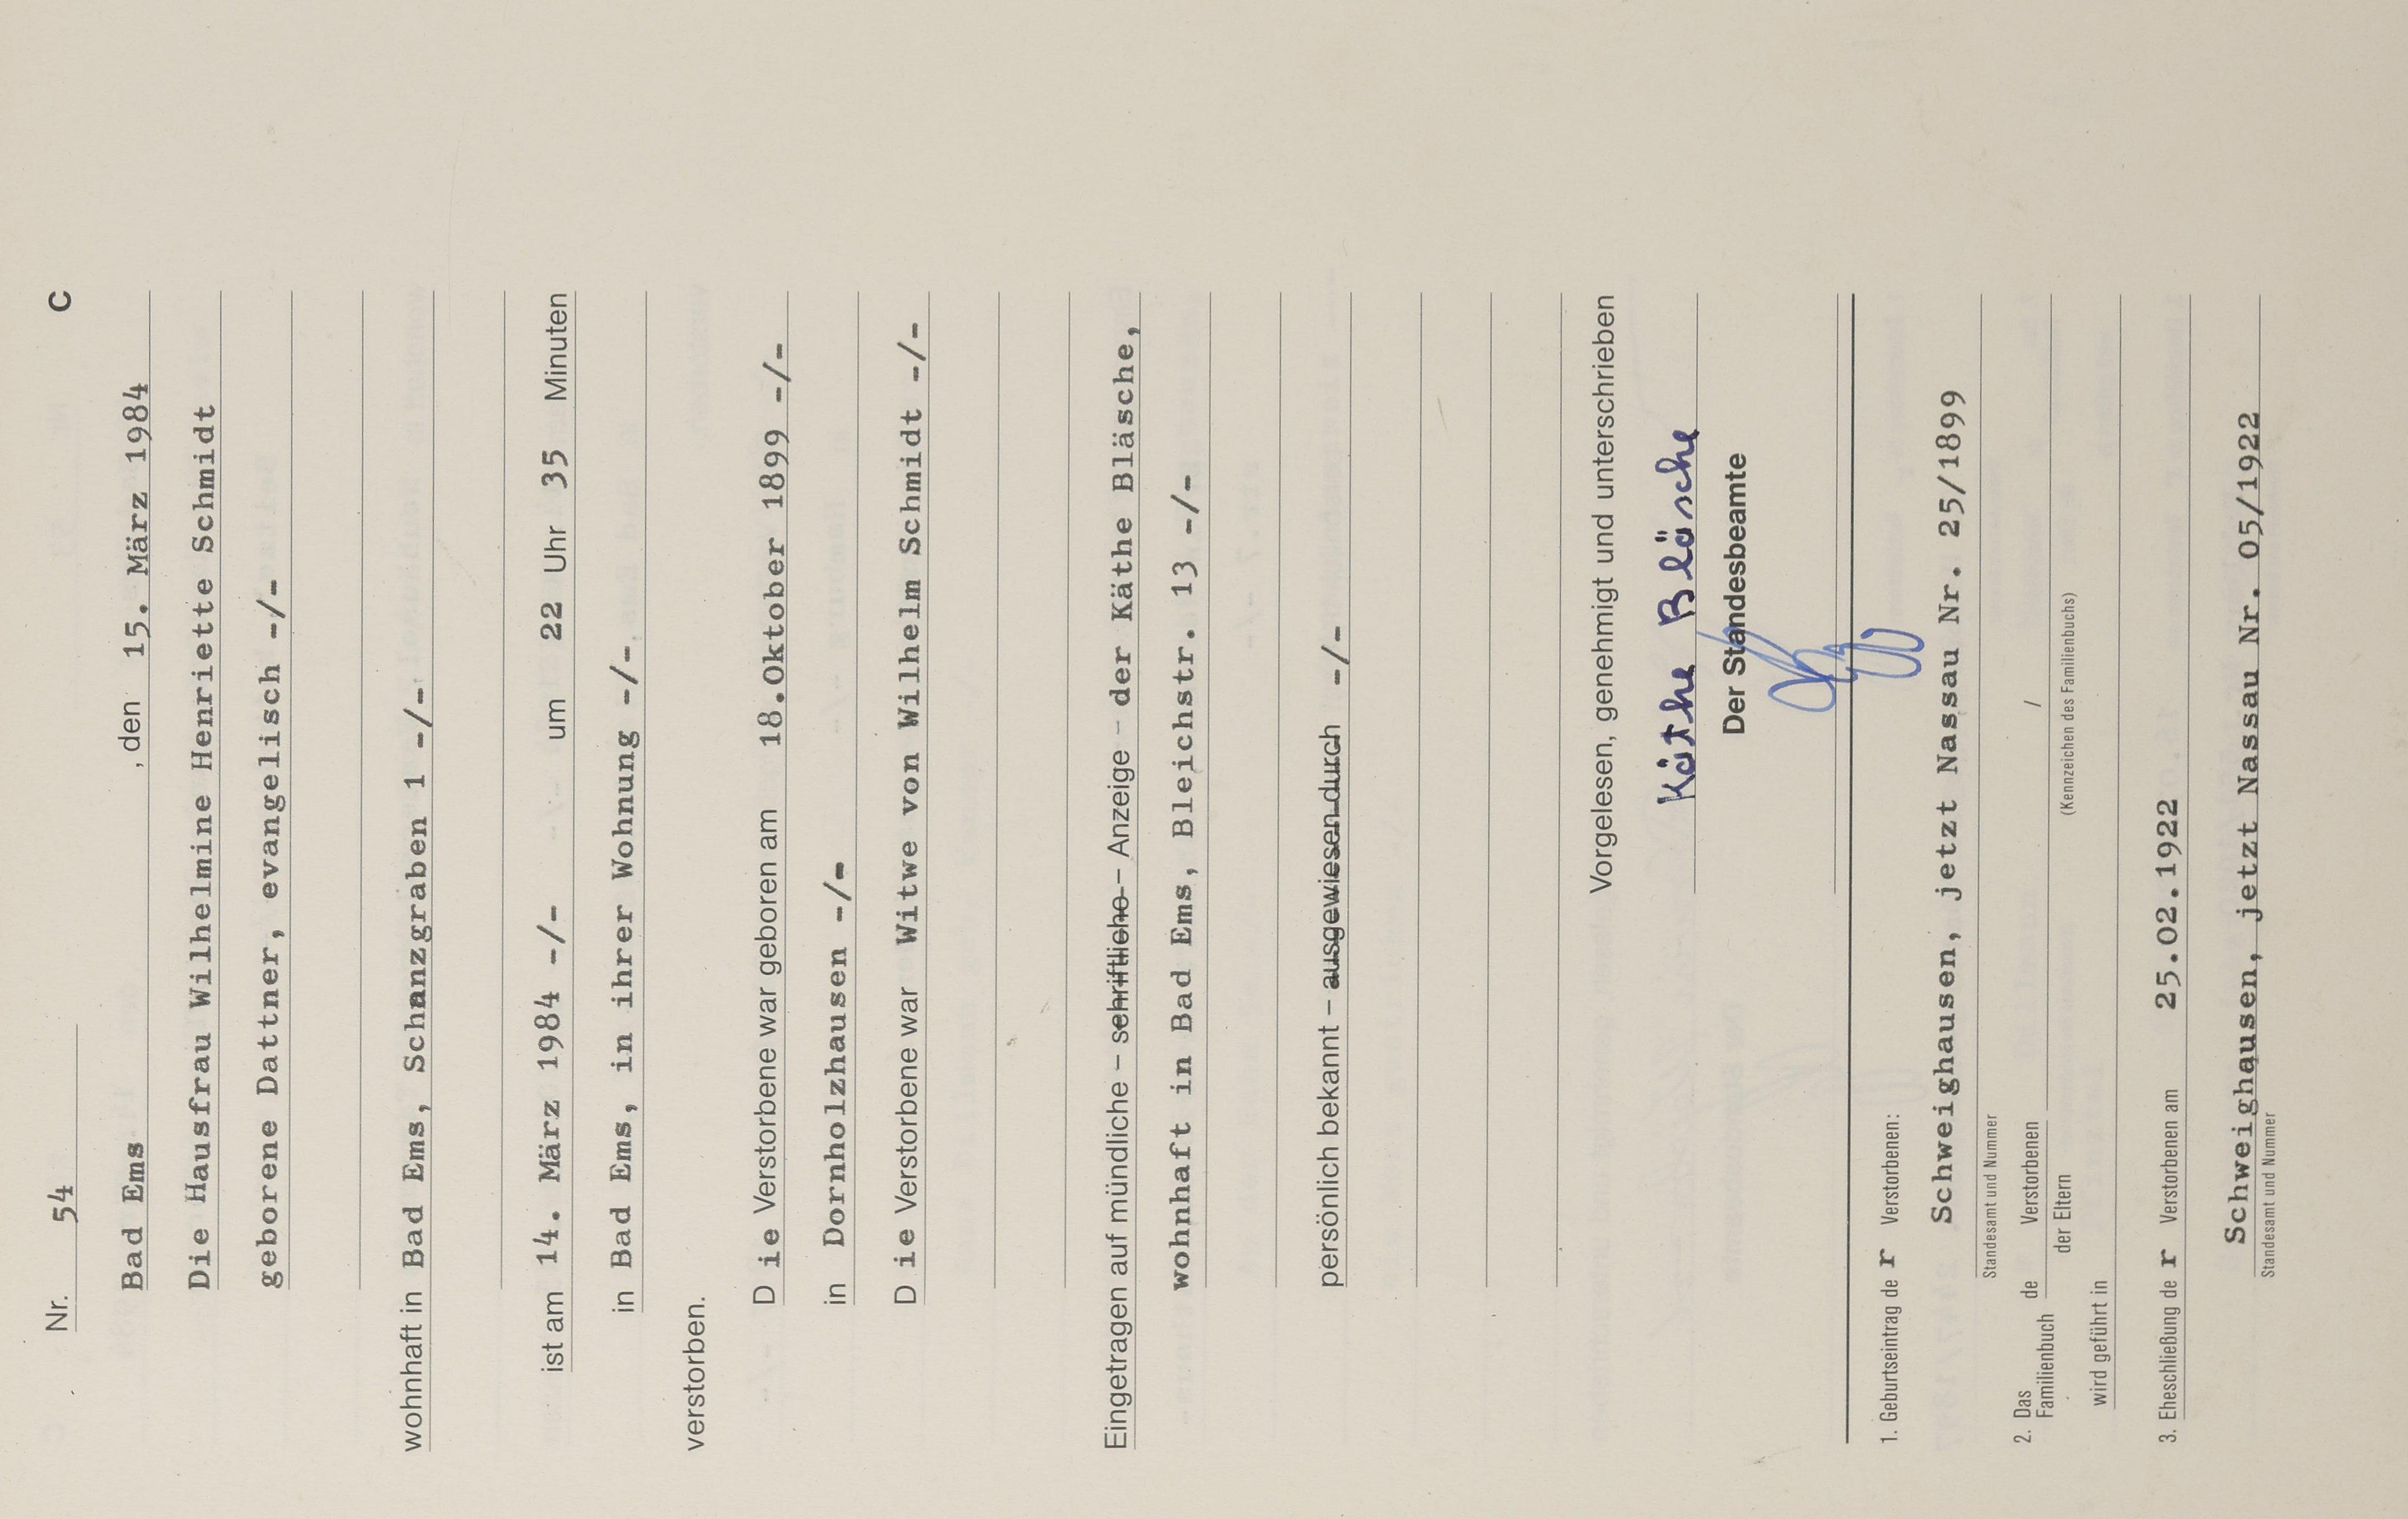 Nr. 54 C
Bad Ems , den 15. März 1984
Die Hausfrau Wilhelmine Henriette Schmidt
geborene Dattner, evangelisch -/-
wohnhaft in Bad Ems, Schanzgraben 1 -/-
ist am 14. März 1984 -/- um 22 Uhr 35 Minuten
in Bad Ems, in ihrer Wohnung -/-
verstorben.
Die Verstorbene war geboren am 18.Oktober 1899 -/-
in Dornholzhausen -/-
Die Verstorbene war Witwe von Wilhelm Schmidt -/-
Eingetragen auf mündliche – schriftliche – Anzeige – der Käthe Bläsche,
wohnhaft in Bad Ems, Bleichstr. 13 -/-
persönlich bekannt – ausgewiesen durch -/-
Vorgelesen, genehmigt und unterschrieben
Käthe Bläsche
Der Standesbeamte
1. Geburtseintrag der Verstorbenen:
Schweighausen, jetzt Nassau Nr. 25/1899
Standesamt und Nummer
2. Das Familienbuch de Verstorbenen /
der Eltern (Kennzeichen des Familienbuchs)
wird geführt in
3. Eheschließung der Verstorbenen am 25.02.1922
Schweighausen, jetzt Nassau Nr. 05/1922
Standesamt und Nummer